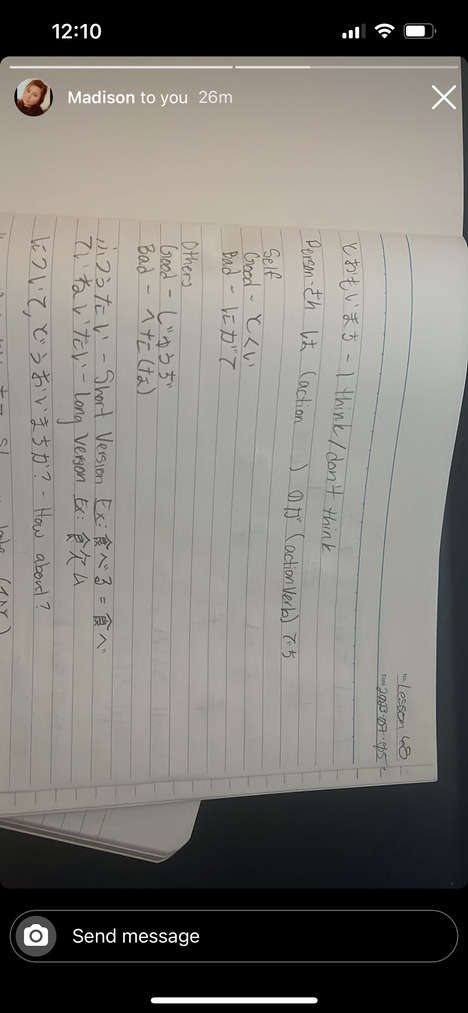 12:10
Madison to you 26m
No. Lesson
Date
とおもいます - I think/don't think
Person-さん は (action ) のが (action Verb) です
Self
Good - とくい
Bad - にがて
Others
Good - じょうず
Bad - へた(な)
ふつうたい - Short Version Ex: 食べる = 食べ
ていねいたい - Long Version Ex:
について, どうおいますか? - How about?
Send message